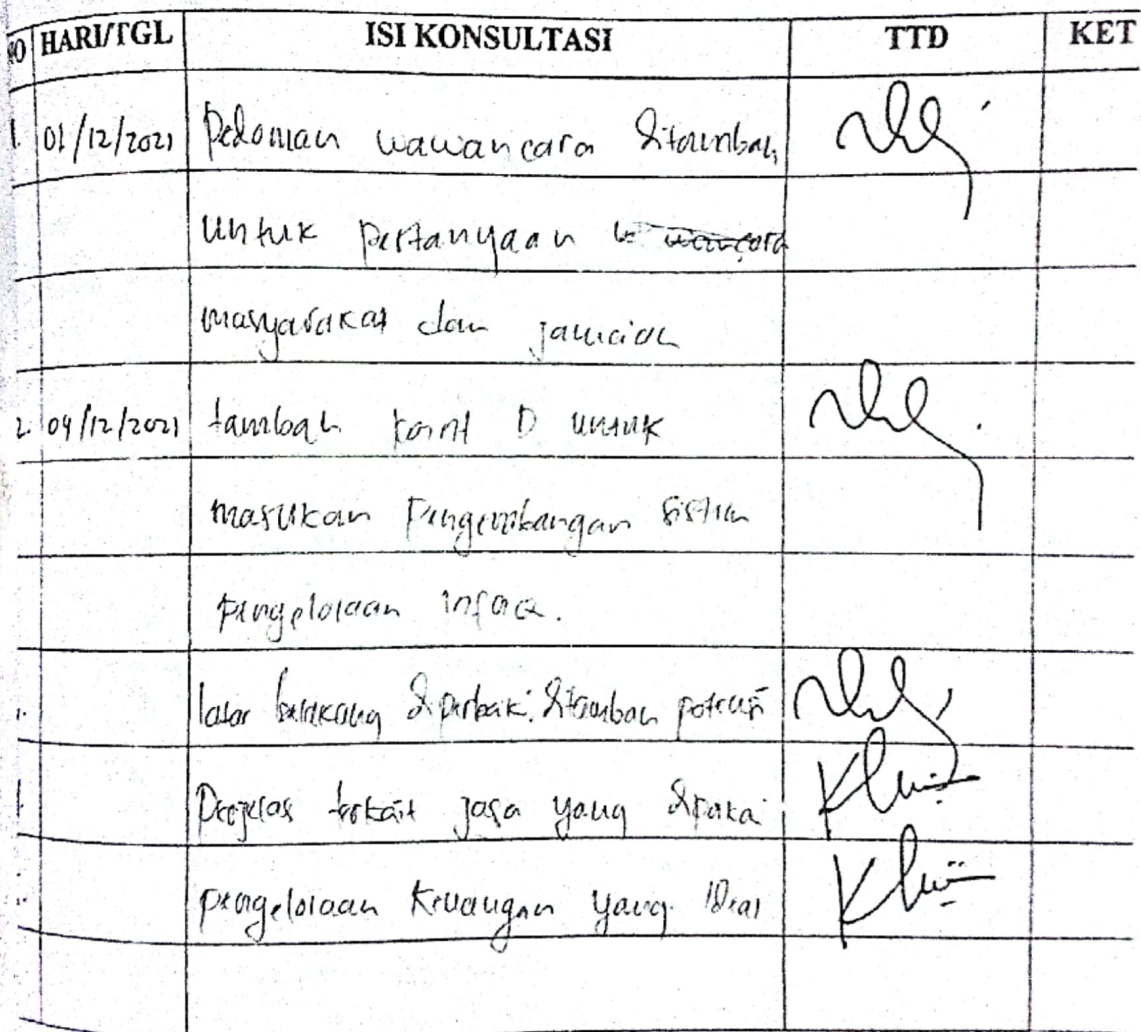 NO HARI/TGL ISI KONSULTASI TTD KET
1. 01/12/2021 Pedoman wawancara ditambah
untuk pertanyaan
masyarakat dan jamaah
2. 04/12/2021 tambah point D untuk
masukan pengembangan sistem
pengelolaan infaq.
latar belakang diperbaiki. ditambah potensi
Perjelas terkait jasa yang dipakai
pengelolaan keuangan yang ideal